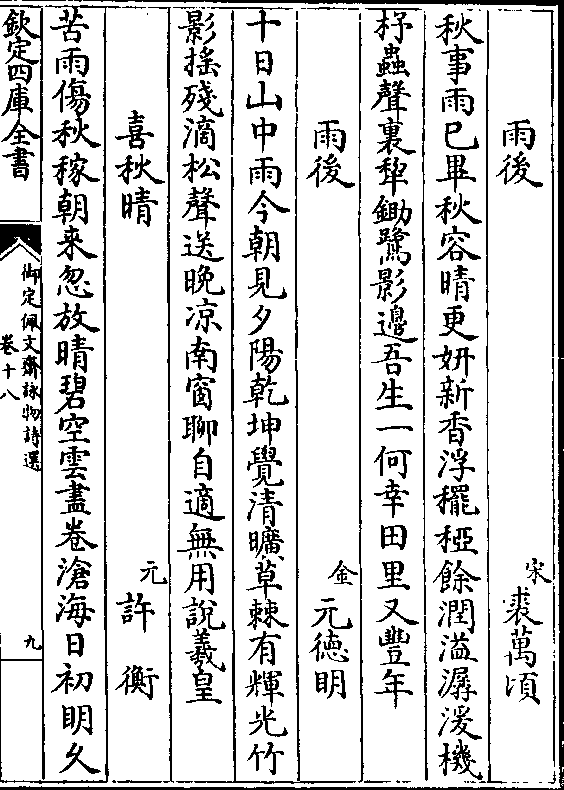 雨後　宋裘萬頃
秋事雨已畢秋容晴更姸新香浮䆉稏餘潤溢潺湲機
杼蟲聲裏犂鋤鷺影邊吾生一何幸田里又豐年
雨後　金元德明
十日山中雨今朝見夕陽乾坤覺清曠草棘有輝光竹
影揺殘滴松聲送晚凉南窗聊自適無用說羲皇
喜秋晴　元許衡
苦雨傷秋稼朝來忽放晴碧空雲盡卷滄海日初明久
欽定四庫全書
御定佩文齋詠物詩選
卷十八
九